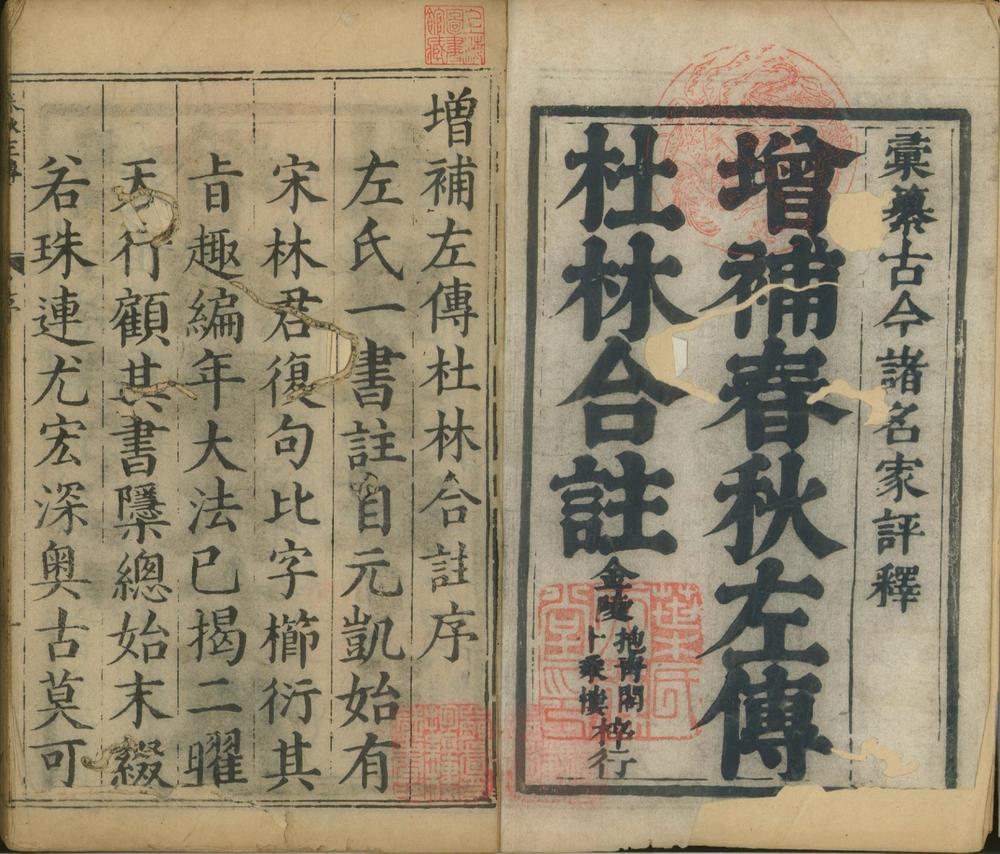 彙纂古今諸名家評釋
增補春秋左傳
杜林合註
金陵
抱青閣
卜乘樓
梓行
增補左傳杜林合註序
左氏一書註自元凱始有
宋林君復句比字櫛衍其
旨趣編年大法已揭二曜
天行顧其書隱總始末綴
若珠連尤宏深奧古莫可